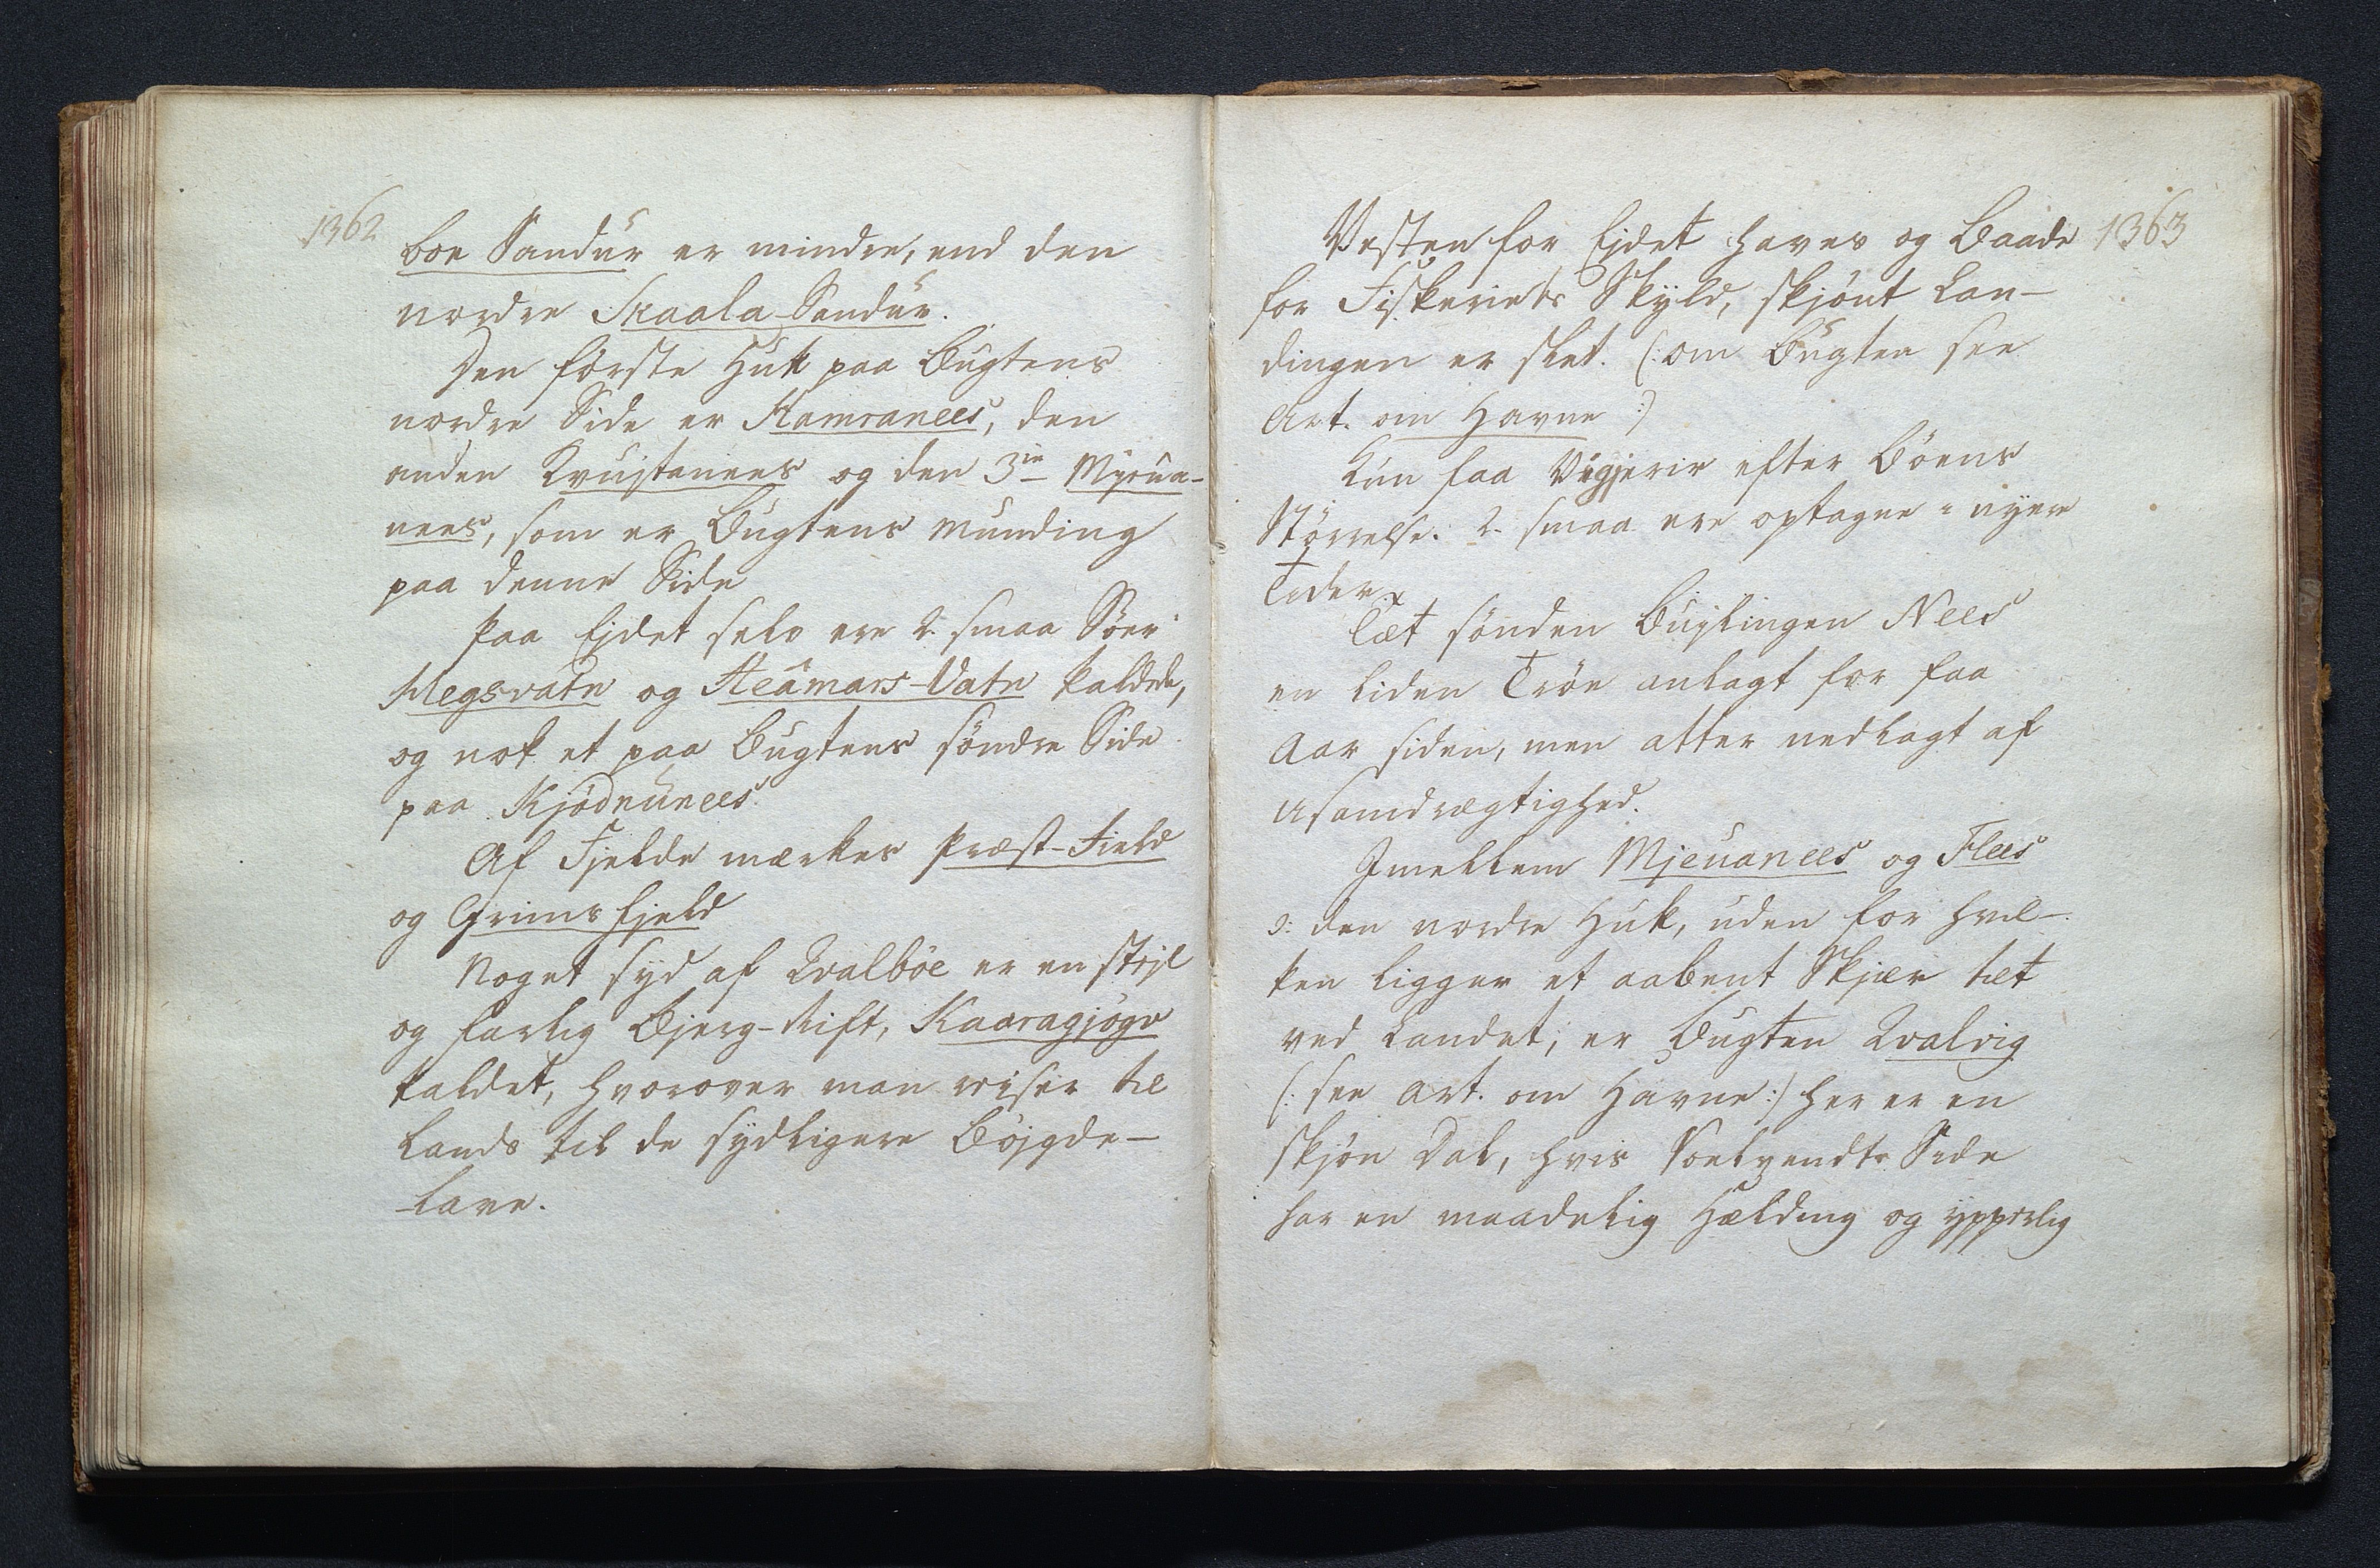 1362
boe Sandur er mindre, end den
nordre Skaala-Sandur.
Den förste Huk paa Bugtens
nordre Side er Hamranees, den
anden Krustanees og den 3ie Mjeua-
nees, som er Bugtens Munding
paa denne Side
Paa Ejdet selv ere 2 smaa Söer
Megsvatn og Heâmars-Vatn kaldede,
og nok et paa Bugtens söndre Side
paa Kjödnunees.
Af Fjelde mærkes Præst-Field
og Grimsfjeld
Noget syd af Qvalböe er en stejl
og farlig Bjerg-Rift, Kaaragjógv
kaldet, hvorover man rejser til
Lands til de sydligere Böjgde-
lave.
1363
Vesten for Ejdet haves og Baade
for Fiskeriets Skyld, skjönt Lan-
dingen er slet. (: om Bugten see
Art. om Havne :)
Kun faa Vigjerir efter Böens
Störrelse. 2 smaa ere optagne i nyere
Tider.
Tæt sönden Buglingen Nees
en liden Tröe anlagt for faa
Aar siden, men atter nedlagt af
Usamdrægtighed.
Imellem Mjeuanees og Flees
ɔ: den nordre Huk, uden for hvil-
ken ligger et aabent Skjær tæt
ved Landet, er Bugten Qvalvig
(: see Art. om Havne :) her er en
skjön Dal, hvis Soelvendte Side
har en maadelig Hælding og ypperlig